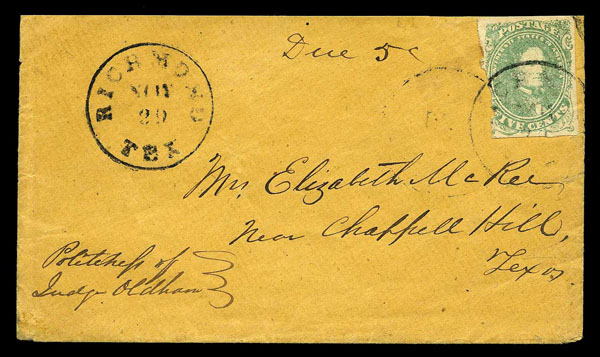 Due 5c
POSTAGE
FIVE CENTS
RICHMOND
NOV
29
TEX
Mrs. Elizabeth McKee
Near Chappell Hill,
Texas
Politeness of
Judge Oldham